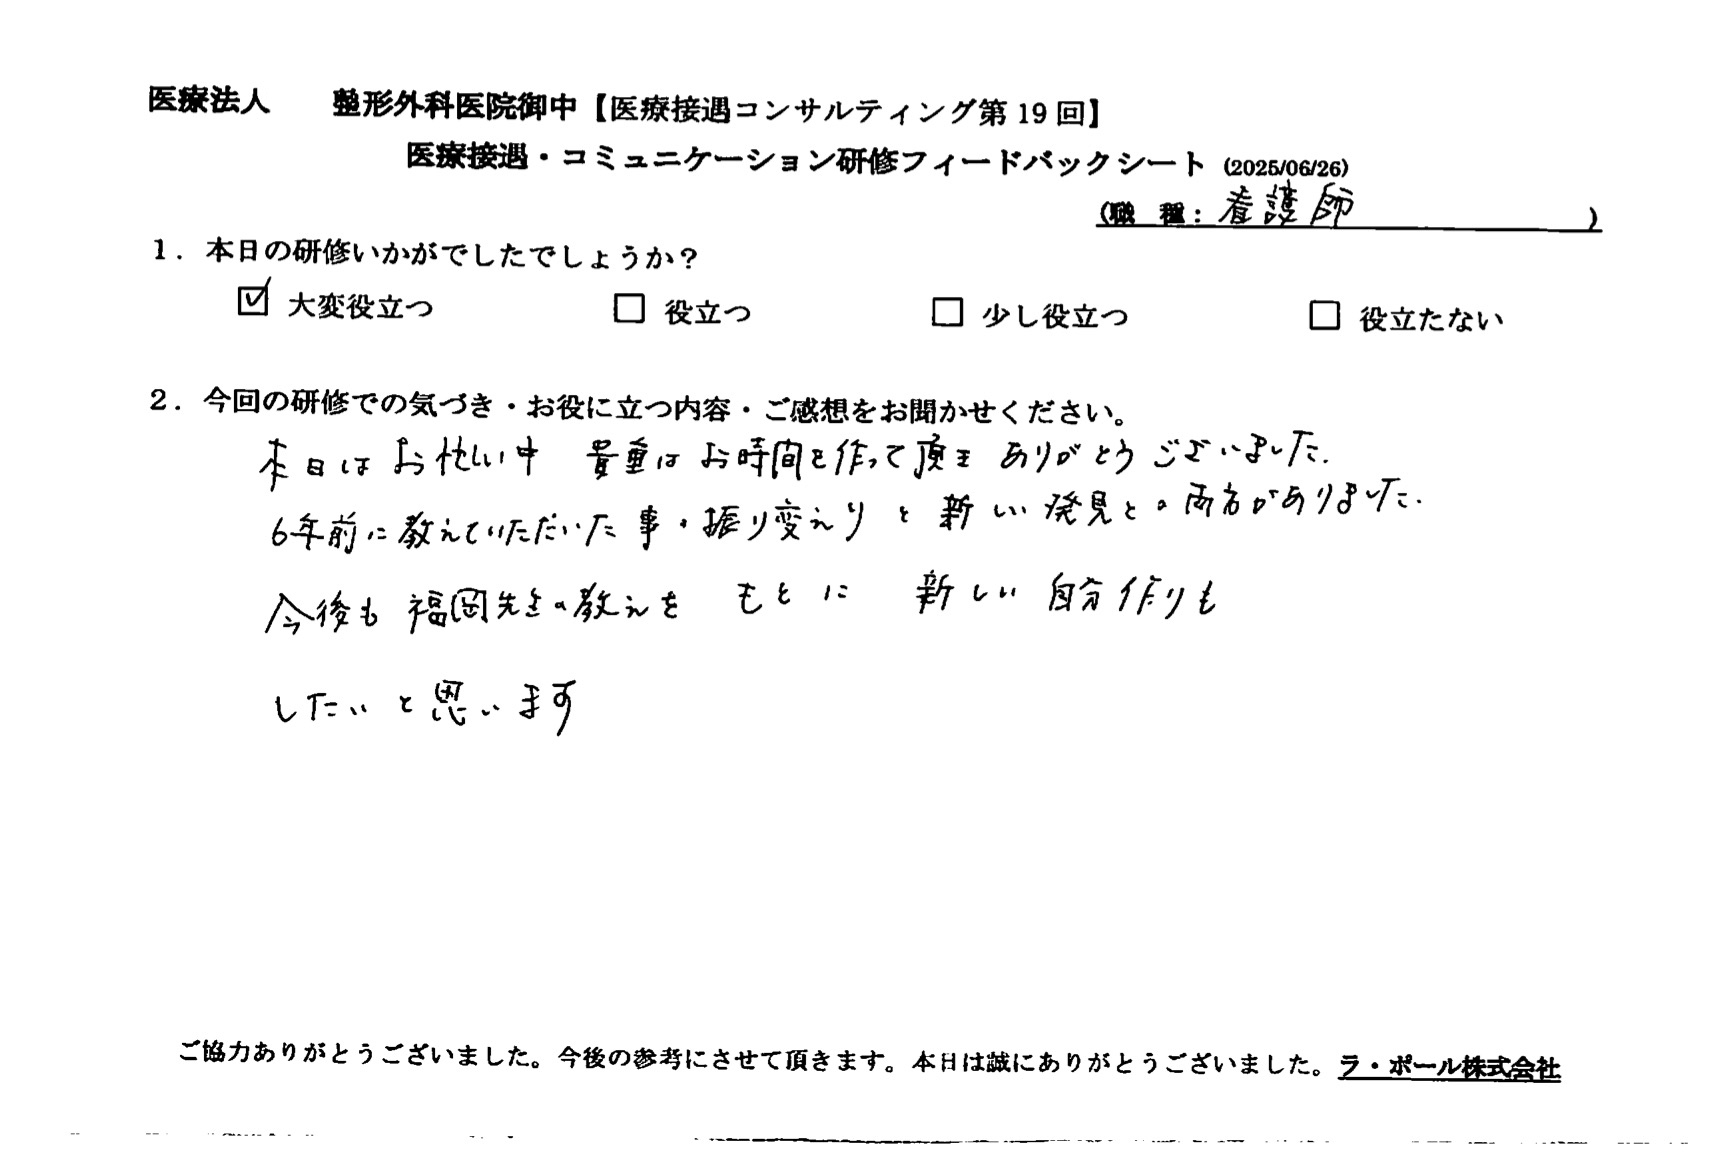 医療法人　　整形外科医院御中【医療接遇コンサルティング第19回】
医療接遇・コミュニケーション研修フィードバックシート (2025/06/26)
(職　種：看護師　　　　　　　)
1．本日の研修いかがでしたでしょうか？
☑ 大変役立つ　□ 役立つ　□ 少し役立つ　□ 役立たない
2．今回の研修での気づき・お役に立つ内容・ご感想をお聞かせください。
本日はお忙しい中 貴重なお時間を作って頂き ありがとうございました．
6年前に教えていただいた事の振り変えりと新しい発見との両方がありました．
今後も福岡先生の教えを もとに 新しい自分作りも
したいと思います
ご協力ありがとうございました。今後の参考にさせて頂きます。本日は誠にありがとうございました。ラ・ポール株式会社